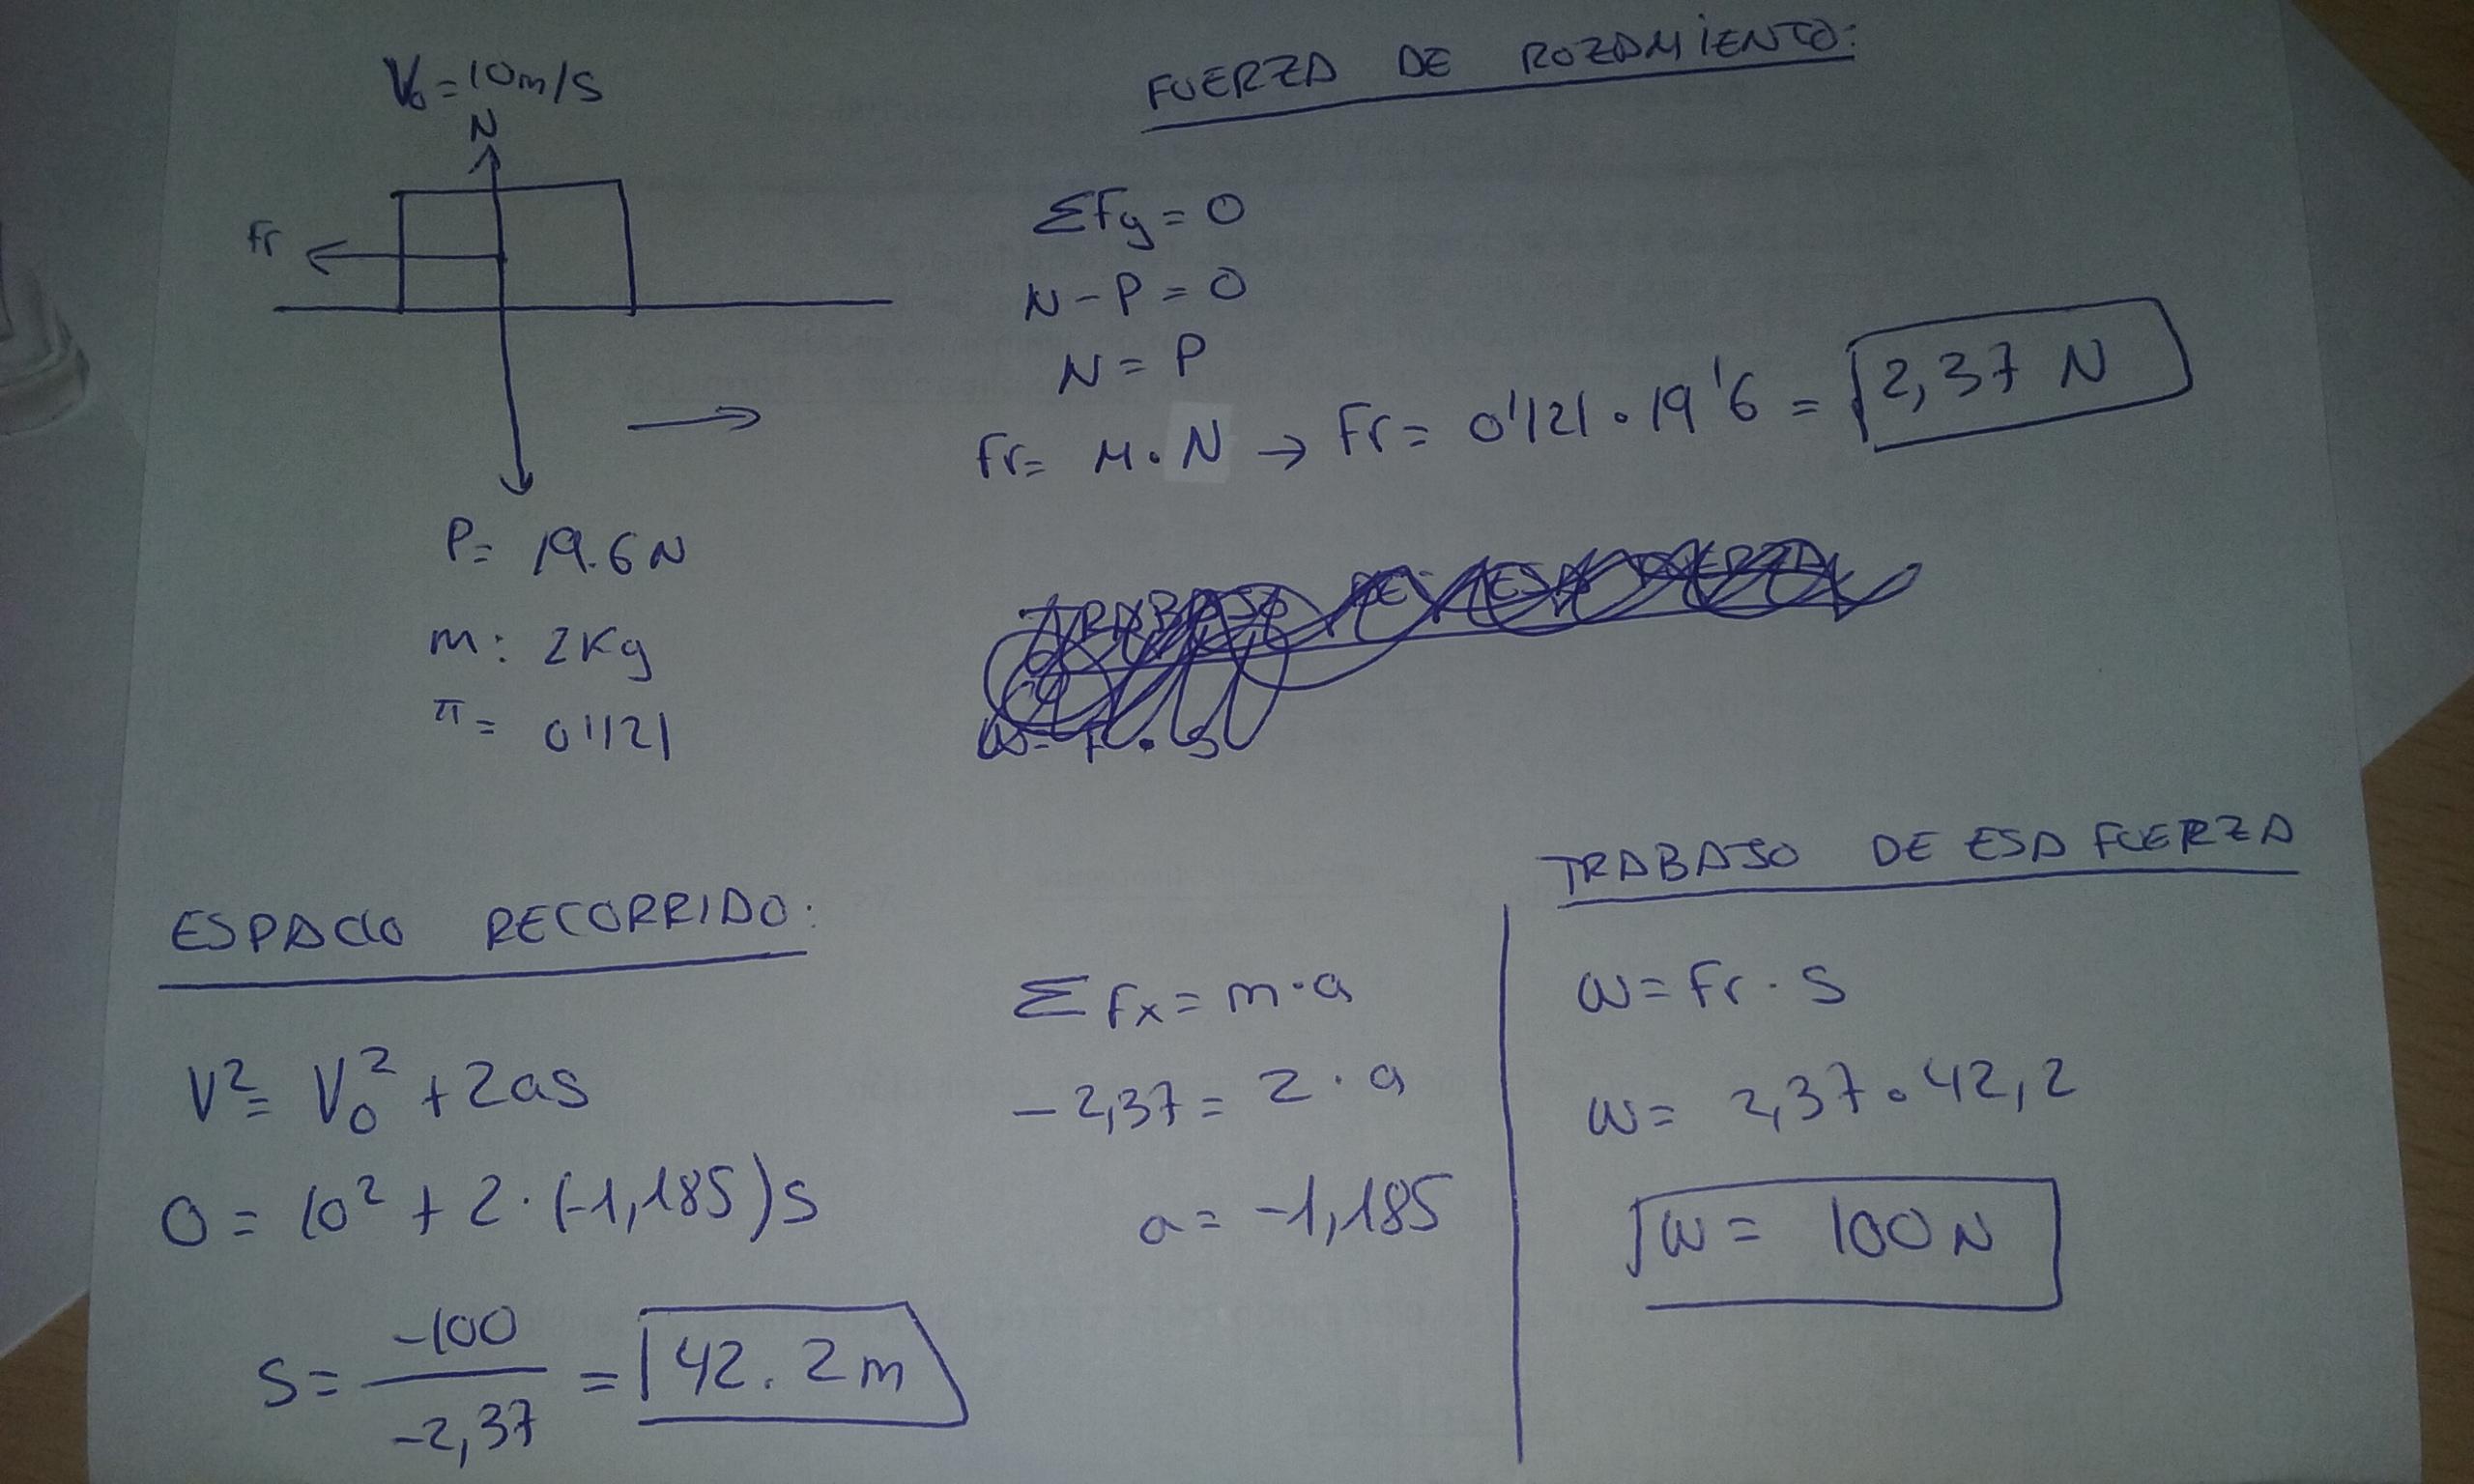 V₀=10m/s
N
Fr
P= 19.6N
m: 2Kg
π= 0'121
FUERZA DE ROZAMIENTO:
ΣFy=0
N-P=0
N=P
Fr= μ.N → Fr= 0'121.19'6 = 2,37 N
TRABAJO DE ESA FUERZA
W=F.S
ESPACIO RECORRIDO:
V²= V₀² +2as
0= 10² + 2·(-1,185)s
S= -100/-2,37 = 42.2m
ΣFx= m·a
-2,37= 2·a
a= -1,185
TRABAJO DE ESA FUERZA
W= Fr·S
W= 2,37.42,2
W= 100N